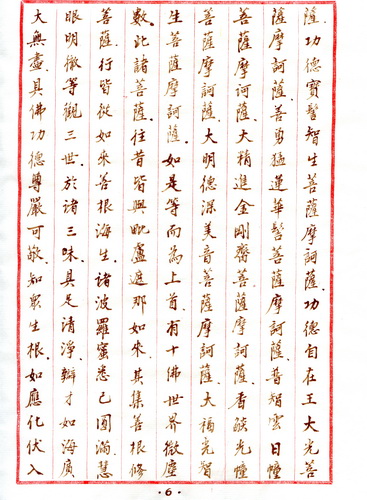 薩。功德寶髻智生菩薩摩訶薩。功德自在王大光菩
薩摩訶薩。善勇猛蓮華髻菩薩摩訶薩。普智雲日幢
菩薩摩訶薩。大精進金剛齋菩薩摩訶薩。香燄光幢
菩薩摩訶薩。大明德深美音菩薩摩訶薩。大福光智
生菩薩摩訶薩。如是等而為上首。有十佛世界微塵
數。此諸菩薩。往昔皆與毗盧遮那如來。共集善根。修
菩薩行。皆從如來善根海生。諸波羅蜜悉已圓滿。慧
眼明徹。等觀三世。於諸三昧。具足清淨。辯才如海。廣
大無盡。具佛功德。尊嚴可敬。知眾生根。如應化伏。入
·6·